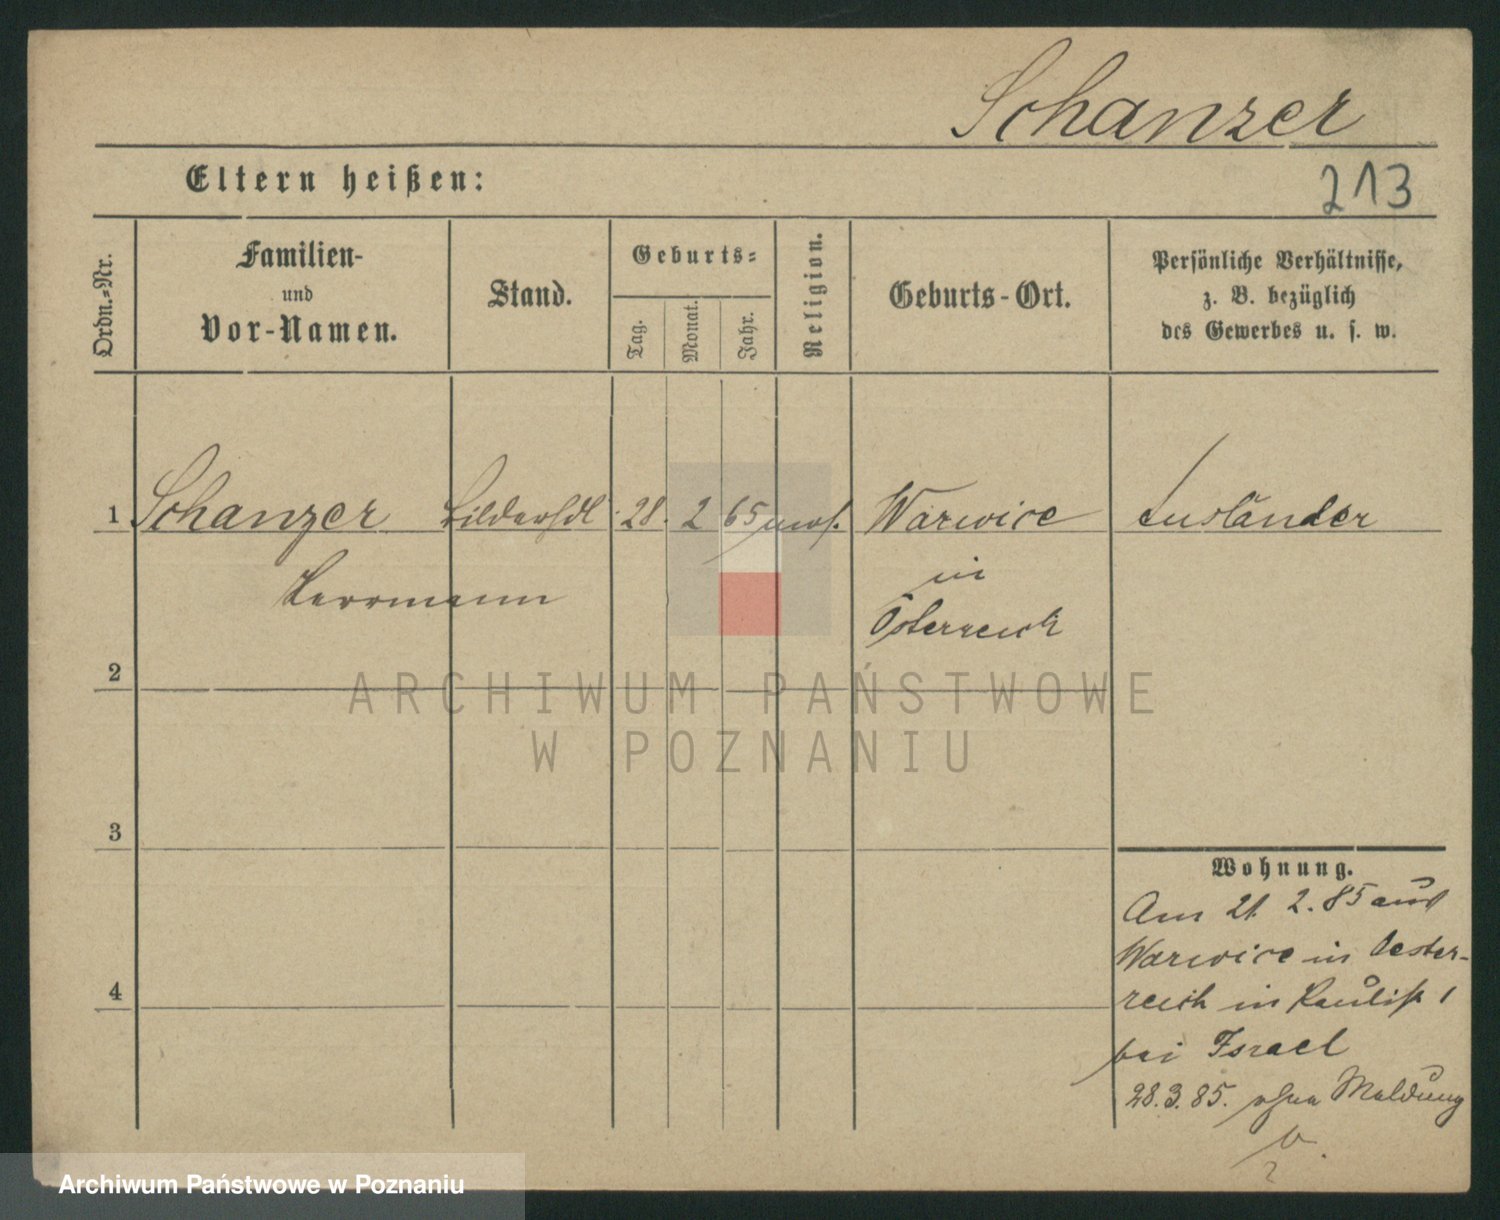 Schanzer
Eltern heißen:
213
Ordn.=Nr.
Familien-
und
Vor-Namen.
Stand.
Geburts=
Tag.
Monat.
Jahr.
Religion.
Geburts-Ort.
Persönliche Verhältnisse,
z. B. bezüglich
des Gewerbes u. s. w.
1 Schanzer Bilderhdl. 28. 2 65 mos. Warwice Ausländer
Herrmann in
Österreich
2
3
4
Wohnung.
Am 21 2. 85 aus
Warwice in Oester-
reich in Paulist 1
bei Israel
28.3.85. ohne Meldung
v.
?
ARCHIWUM PAŃSTWOWE
W POZNANIU
Archiwum Państwowe w Poznaniu